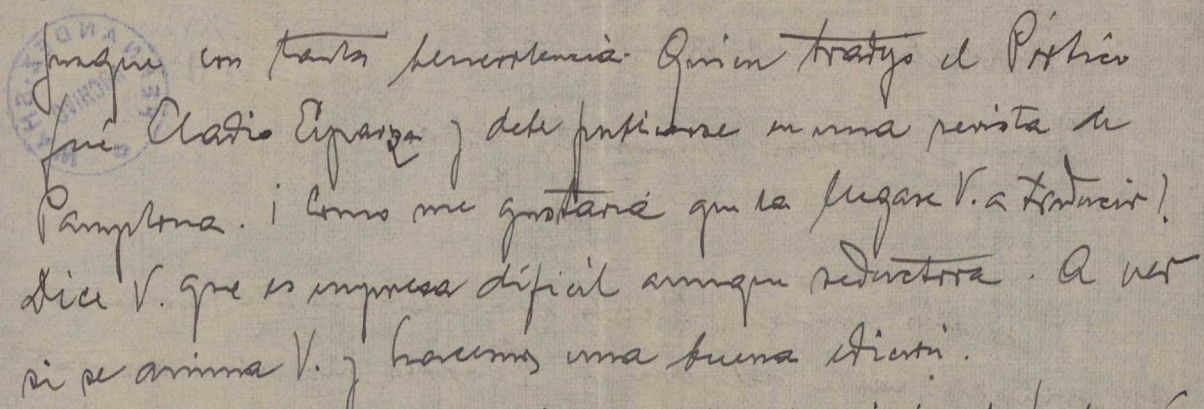 juzgue con tanta benevolencia. Quien tradujo el Pórtico
fué Eladio Esparza y debe publicarse en una revista de
Pamplona. ¡Como me gustaría que la llegase V. a traducir!
Dice V. que es empresa difícil aunque seductora. A ver
si se anima V. y hacemos una buena edición.